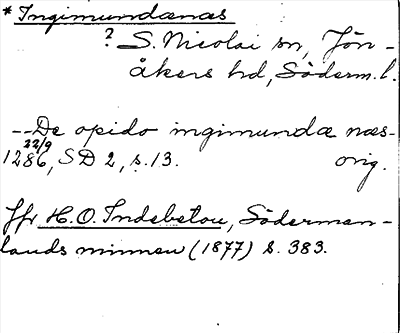 *Ingimundænæs
? S. Nicolai sn, Jön-
åkers hd, Söderm. l.
--De opido ingimundæ næs-
22/9
1286, SD 2, s. 13. orig.
Jfr H. O. Indebetou, Söderman-
lands minnen (1877) s. 383.